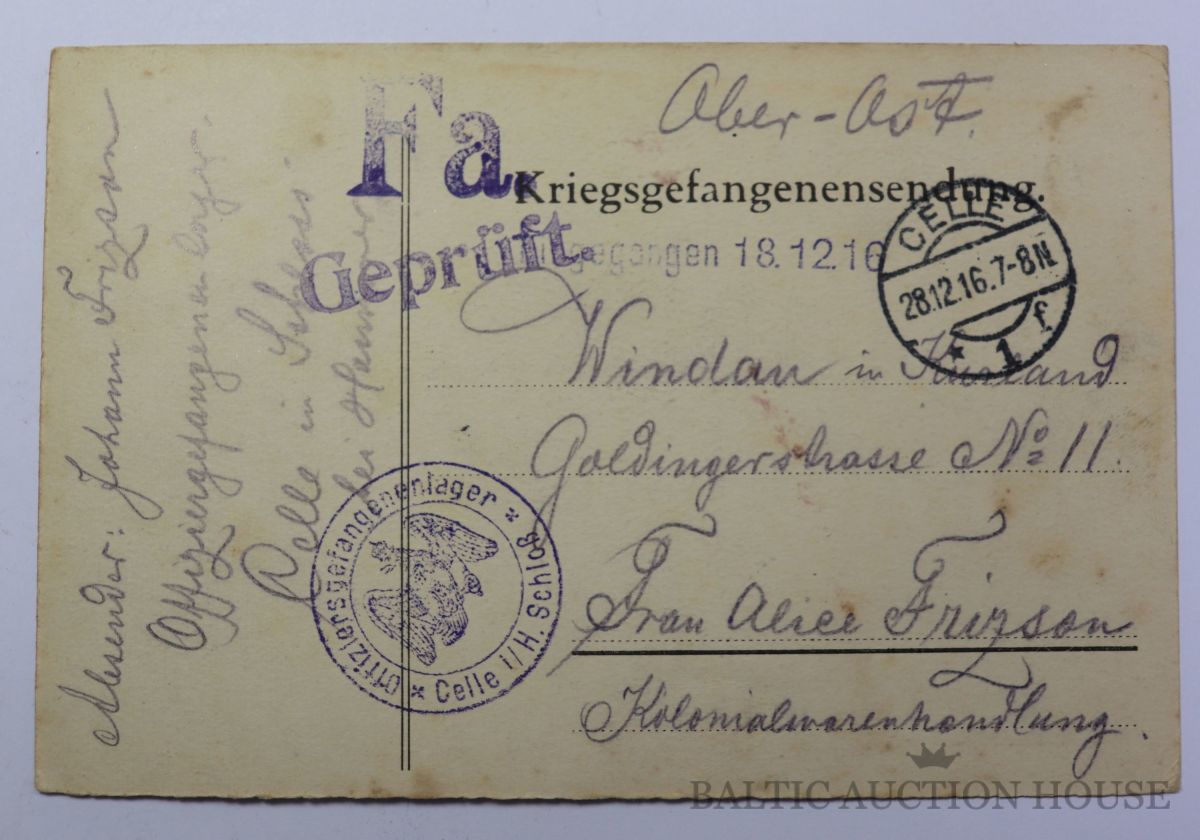 Ober-Ost.
Fa.
Kriegsgefangenensendung.
Geprüft.
gegangen 18.12.16
CELLE
28.12.16.7-8N
* 1 f
Windau in Kurland
Goldingerstrasse № 11.
Frau Alice Frizson
Kolonialwarenhandlung.
Absender: Johann Frizson
Offiziergefangenenlager.
Celle in Schloss
bei Hannover
Offiziersgefangenenlager * Celle i/H. Schloß *
BALTIC AUCTION HOUSE